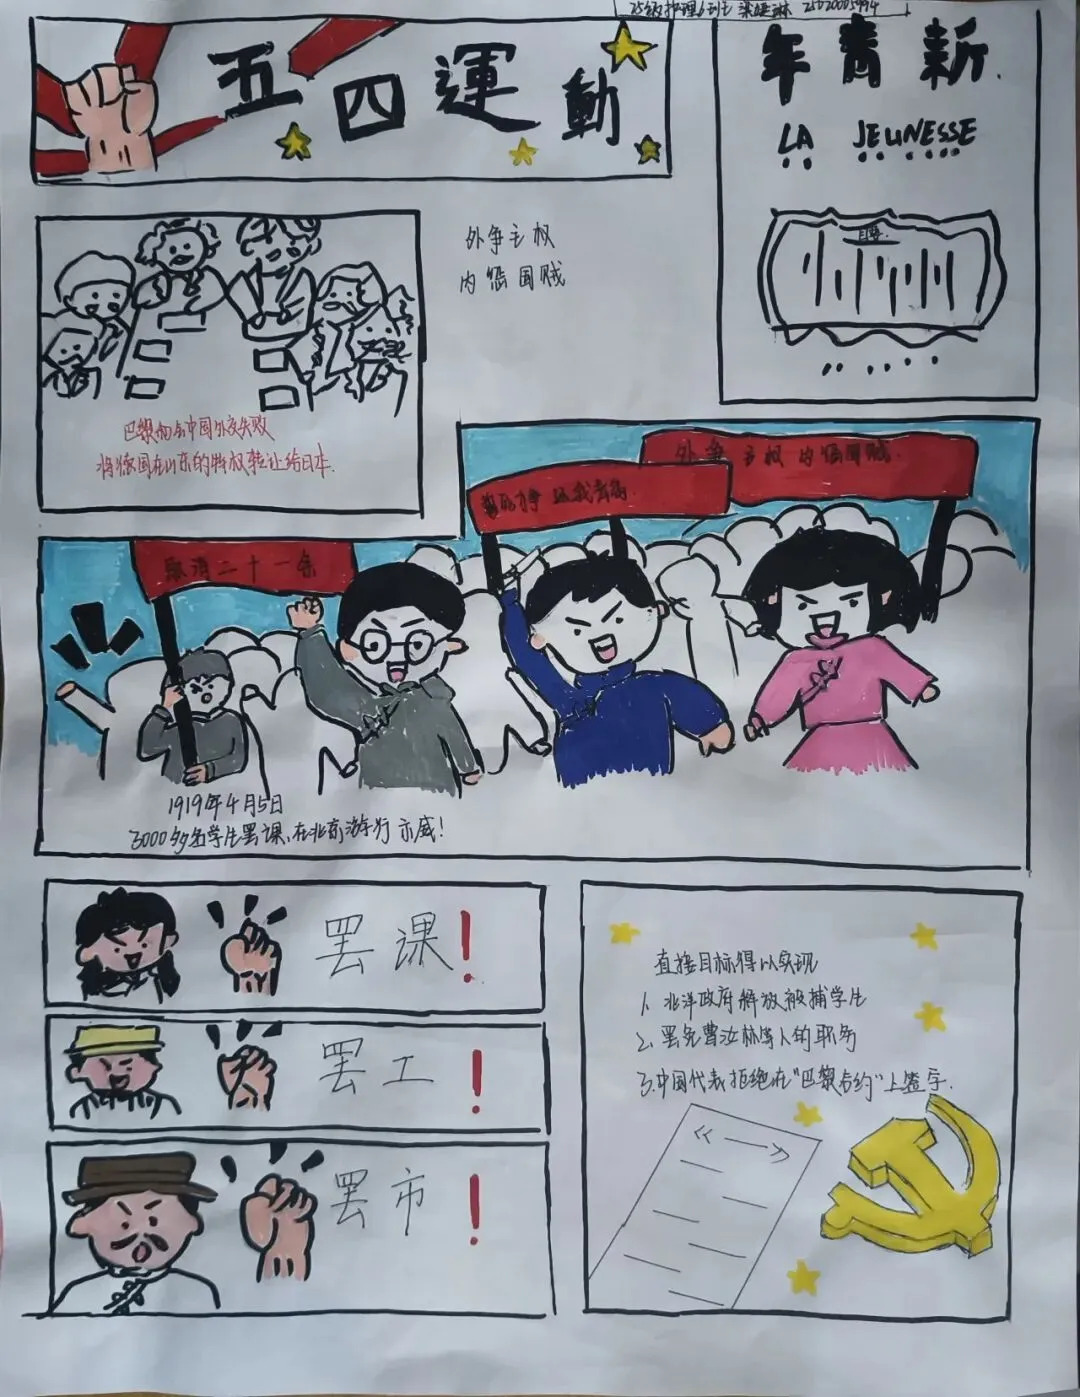 五四運動
年青新.
LA JEUNESSE
外争主权
内惩国贼
巴黎和会中国外交失败
将德国在山东的特权转让给日本.
外争主权 内惩国贼.
取消二十一条
1919年4月5日
3000多名学生罢课,在北京游行示威!
罢课!
罢工!
罢市!
直接目标得以实现
1. 北洋政府解放被捕学生
2. 罢免曹汝林等人的职务
3.中国代表拒绝在"巴黎合约"上签字.